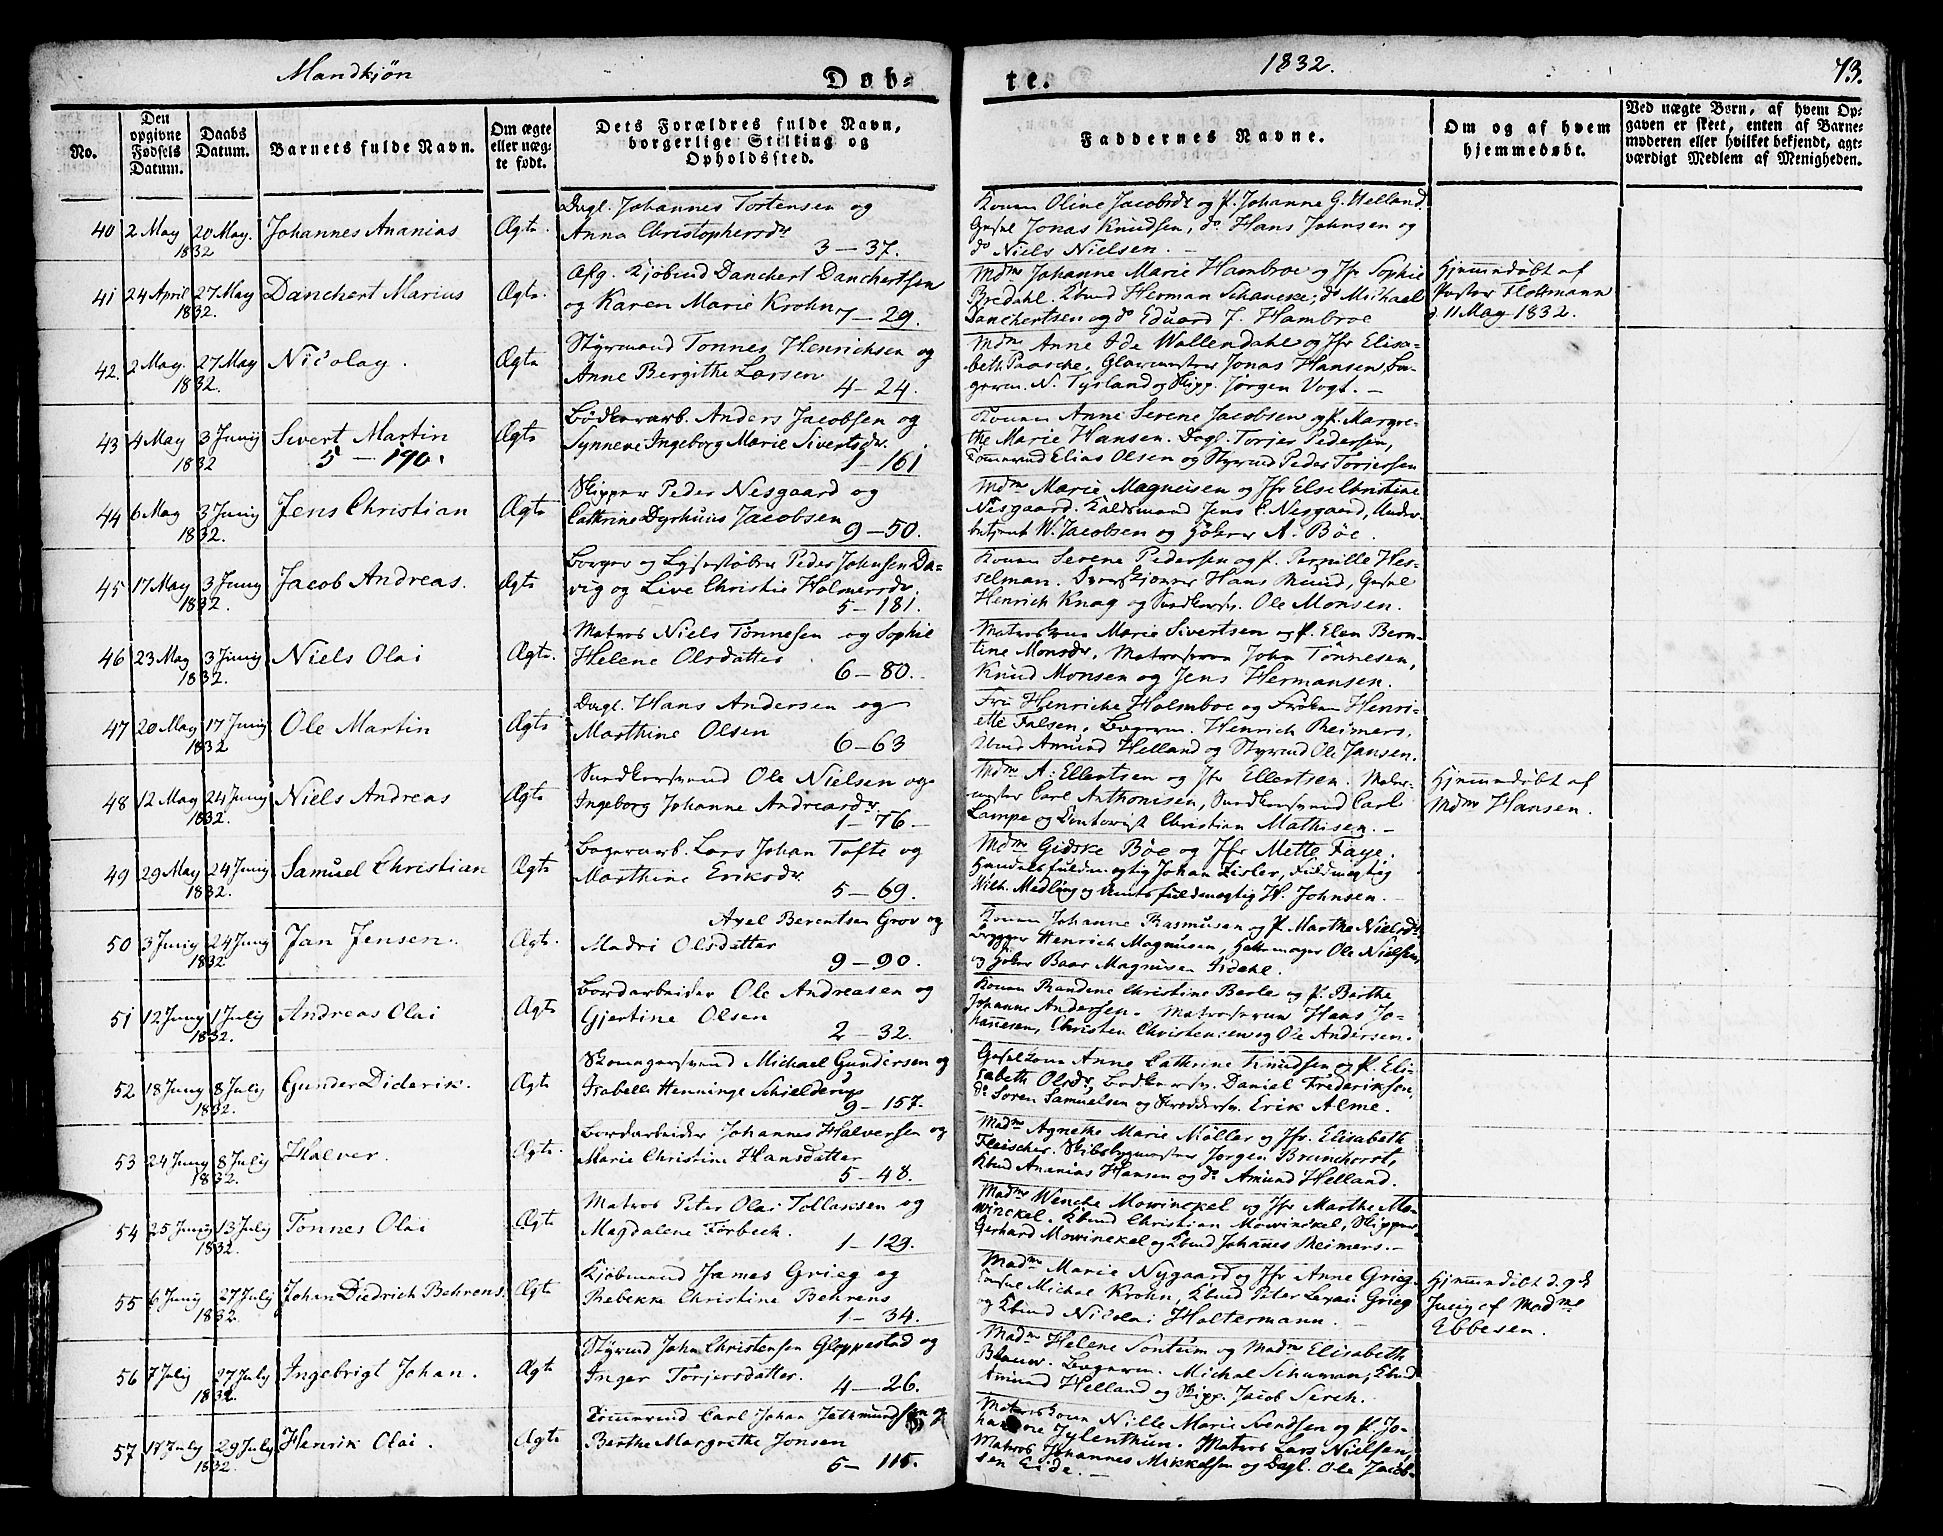 Mandkjøn
Døb-
te.
1832.
73.
No.
Den opgivne Fødsels Datum.
Daabs Datum.
Barnets fulde Navn.
Om ægte eller uægte født.
Dets Forældres fulde Navn, borgerlige Stilling og Opholdssted.
Faddernes Navne.
Om og af hvem hjemmedøbt.
Ved uægte Børn, af hvem Opgaven er skeet, enten af Barnemoderen eller hvilket bekjendt, agtværdigt Medlem af Menigheden.
40 2 May 20 May. 1832 Johannes Ananias Ægte
Dagl. Johannes Tortensen og
Anna Christophersdr
3 – 37.
Konen Oline Jacobsdr og P. Johanne G. Helland.
Jonas Knudsen, do Hans Johnsen og
do Niels Nielsen. –
41 24 April 27 May 1832. Danchert Marius Ægte.
Afg. Kjøbmd Danchert Danchertsen
og Karen Marie Krohn
7 – 29.
Mdme Johanne Marie Hambroe og Jfr Sophie
Bredahl. Kbmd Herman Schancke; do Michael
Danchertsen og do Eduard J. Hambroe
Hjemmedøbt af
Pastor Flottmann
d. 11 May 1832.
42. 2 May. 27 May 1832. Nicolay. Ægte
Styrmand Tönnes Henrichsen og
Anne Bergithe Larsen
4 – 24.
Mdme Anne Ide Wallendahl og Jfr Elisa-
beth Paasche, Glarmester Jonas Hansen,
N. Tysland og Skipp. Jørgen Vogt. –
43 4 May 3 Junij 1832 Sivert Martin Ægte
5 – 190.
Bødkerarb. Anders Jacobsen og
Synneve Ingeborg Marie Sivertsdr.
1 – 161
Konen Anne Serene Jacobsen og P. Margre-
the Marie Hansen. Dagl. Torjer Pedersen,
Tømmermd Elias Olsen og Styrmd Peder Torjersen
44 6 May 3 Junij 1832. Jens Christian Ægte
Skipper Peder Nesgaard og
Cathrine Dyrhuus Jacobsen
9 – 50.
Mdme Marie Magnusen og Jfr Else Christine
Nesgaard. Jens C. Nesgaard, Under-
W. Jacobsen og Høker A. Bøe.
45 17 May 3 Junij 1832. Jacob Andreas. Ægte
Borger og Lysestøber Peder Johnsen Da-
vig og Live Christie Holmersdr.
5 – 181.
Konen Serene Pedersen og P. Pernille Hes-
selman. Hans Mund,
Henrich Knag og Ole Monsen.
46 23 May 3 Junij 1832. Niels Olai Ægte.
Matros Niels Tönnesen og Sophie
Helene Olsdatter
6 – 80.
Matroskone Marie Sivertsen og P. Elen Bern-
tine Monsdr, John Tönnesen,
Knud Monsen og Jens Hermansen.
47 20 May 17 Junij 1832 Ole Martin Ægte
Dagl. Hans Andersen og
Marthine Olsen
6 – 63
Fru Henriche Holmboe og Frøken Henri-
ette Falsen, Henrich Reimers,
Kbmd Amund Helland og Styrmd Ole Jansen.
48 12 May 24 Junij 1832. Niels Andreas Ægte
Ole Nielsen og
Ingeborg Johanne Andreasdr.
1 – 76 –
Mdme A. Ellertsen og Jfr Ellertsen.
Carl Anthonisen, Carl
Lampe og Christian Mathisen. –
Hjemmedøbt af
Mdme Hansen.
49 29 May 24 Junij 1832. Samuel Christian Ægte
Lars Johan Tofte og
Marthine Eriksdr.
5 – 69.
Mdme Gidske Bøe og Jfr Mette Faye.
Handelsfuldmægtig Johan Fuldmægtig
Wilh. Medling og Amtsfuldmægtig H. Johnsen. –
50 3 Junij 24 Junij 1832 Jan Jensen. Ægte.
Axel Berentsen Grov og
Madri Olsdatter
9 – 90.
Konen Johanne Rasmusen og P. Marthe Nielsdr
Henrich Magnusen, Hattemager Ole Nielsen,
og Baar Magnusen
51 12 Junij 1 Julij 1832. Andreas Olai Ægte
Bordarbeider Ole Andreasen og
Gjertine Olsen
2 – 32.
Konen Randine Christine Berle og P. Berthe
Johanne Andersen. Hans Jo-
hanesen, Christen Christensen og Ole Andersen.
52 18 Junij 8 Julij 1832. Gunder Diderik. Ægte
Michael Gundersen og
Isabelle Henninge Schielderup
9 – 157.
Anne Cathrine Knudsen og P. Eli-
sabeth Olsdr, Daniel Frederiksen,
do Søren Samuelsen og Erik Alme.
53 24 Junij 8 Julij 1832. Halver. Ægte.
Bordarbeider Johannes Halversen og
Marie Christine Hansdatter
5 – 48.
Madme Agnethe Marie Möller og Jfr. Elisabeth
Fleischer. Skibsbygmester Jørgen Brunchorst,
Kbmd Ananias Hansen og do Amund Helland.
54 25 Junij 13 Julij 1832. Tönnes Olai Ægte
Matros Peter Olai Tollaksen og
Magdalene Forbech.
1 – 129.
Madme Wenche Mowinckel og Jfr Marthe Mo-
winckel. Kbmd Christian Mowinckel, Skipper
Gerhard Mowinckel og Kbmd Johannes Reimers. –
55 6 Junij 27 Julij 1832. Johan Diedrich Behrens. Ægte
Kjøbmand James Grieg og
Rebekka Christine Behrens
1 – 34.
Madme Marie Nygaard og Jfr Anne Grieg.
Michael Krohn, Kbmd Peter Grieg
og Kbmd Nicolai Holtermann. –
Hjemmedøbt d. 9de
Junij af Madme
Ebbesen.
56 7 Julij 27 Julij 1832. Ingebrigt Johan. Ægte
Styrmd John Christensen Gloppestad og
Inger Torjersdatter.
4 – 26.
Madme Helene Sontum og Madme Elisabeth
Blauw. Michal Schuman, Kbmd
Amund Helland og Skipp. Jacob Serch.
57 17 July 29 July 1832. Henrik Olai. Ægte
Tømmermd Carl Johan Jethmundsen og
Berthe Margrethe Jonsen
5 – 115.
Matroskone Nille Marie Svendsen og P. Jo-
hanne Jylenthun. Matros Lars Nielsen,
Matros Johannes Mikkelsen og Dagl. Ole Jacob-
sen Eide. –